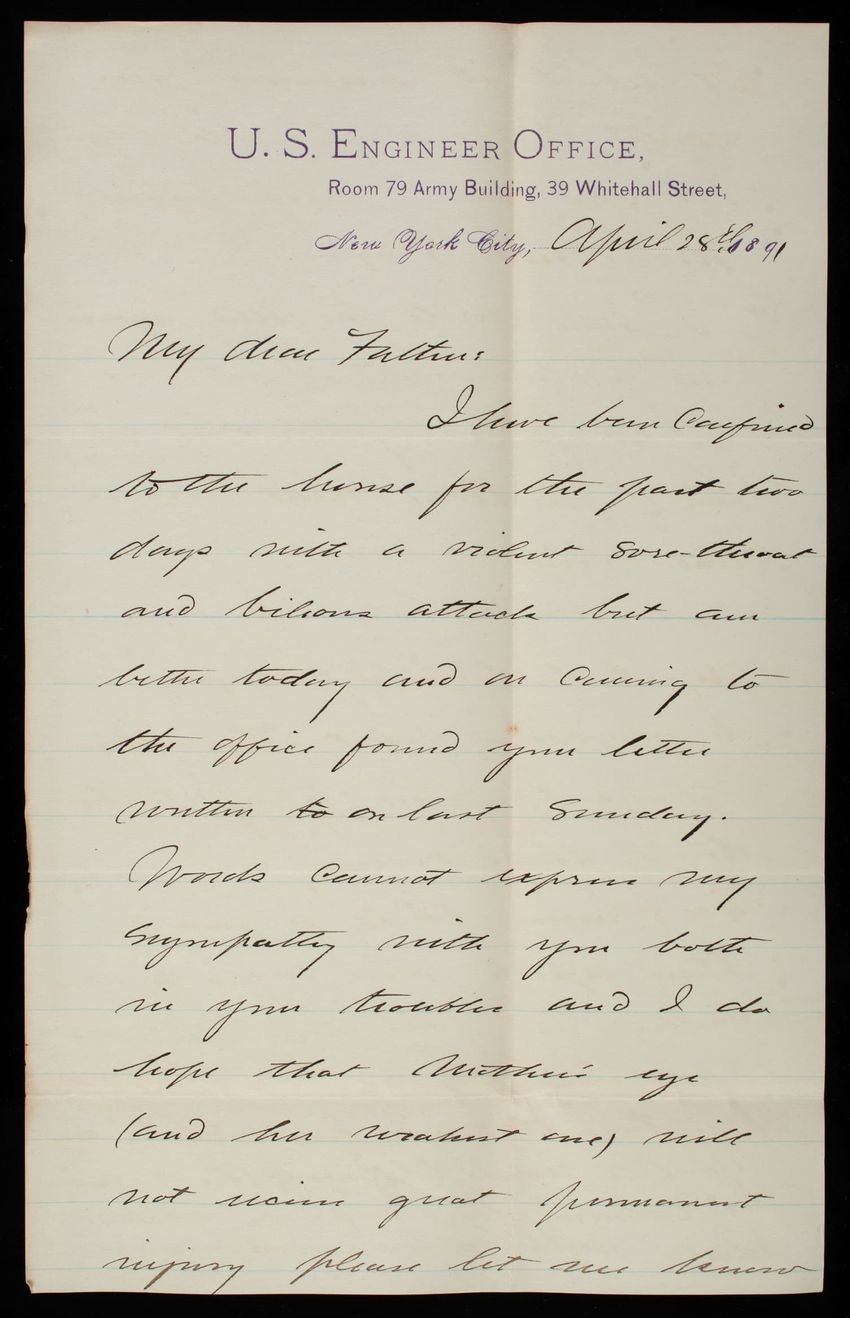 U. S. ENGINEER OFFICE,
Room 79 Army Building, 39 Whitehall Street,
New York City, April 28th 1891
My dear Father:
I have been confined
to the house for the past two
days with a violent sore-throat
and bilious attack but am
better today and on coming to
the office found your letter
written to on last Sunday.
Words cannot express my
sympathy with you both
in your troubles and I do
hope that Mother's eye
(and her weakest one) will
not receive great permanent
injury please let me know